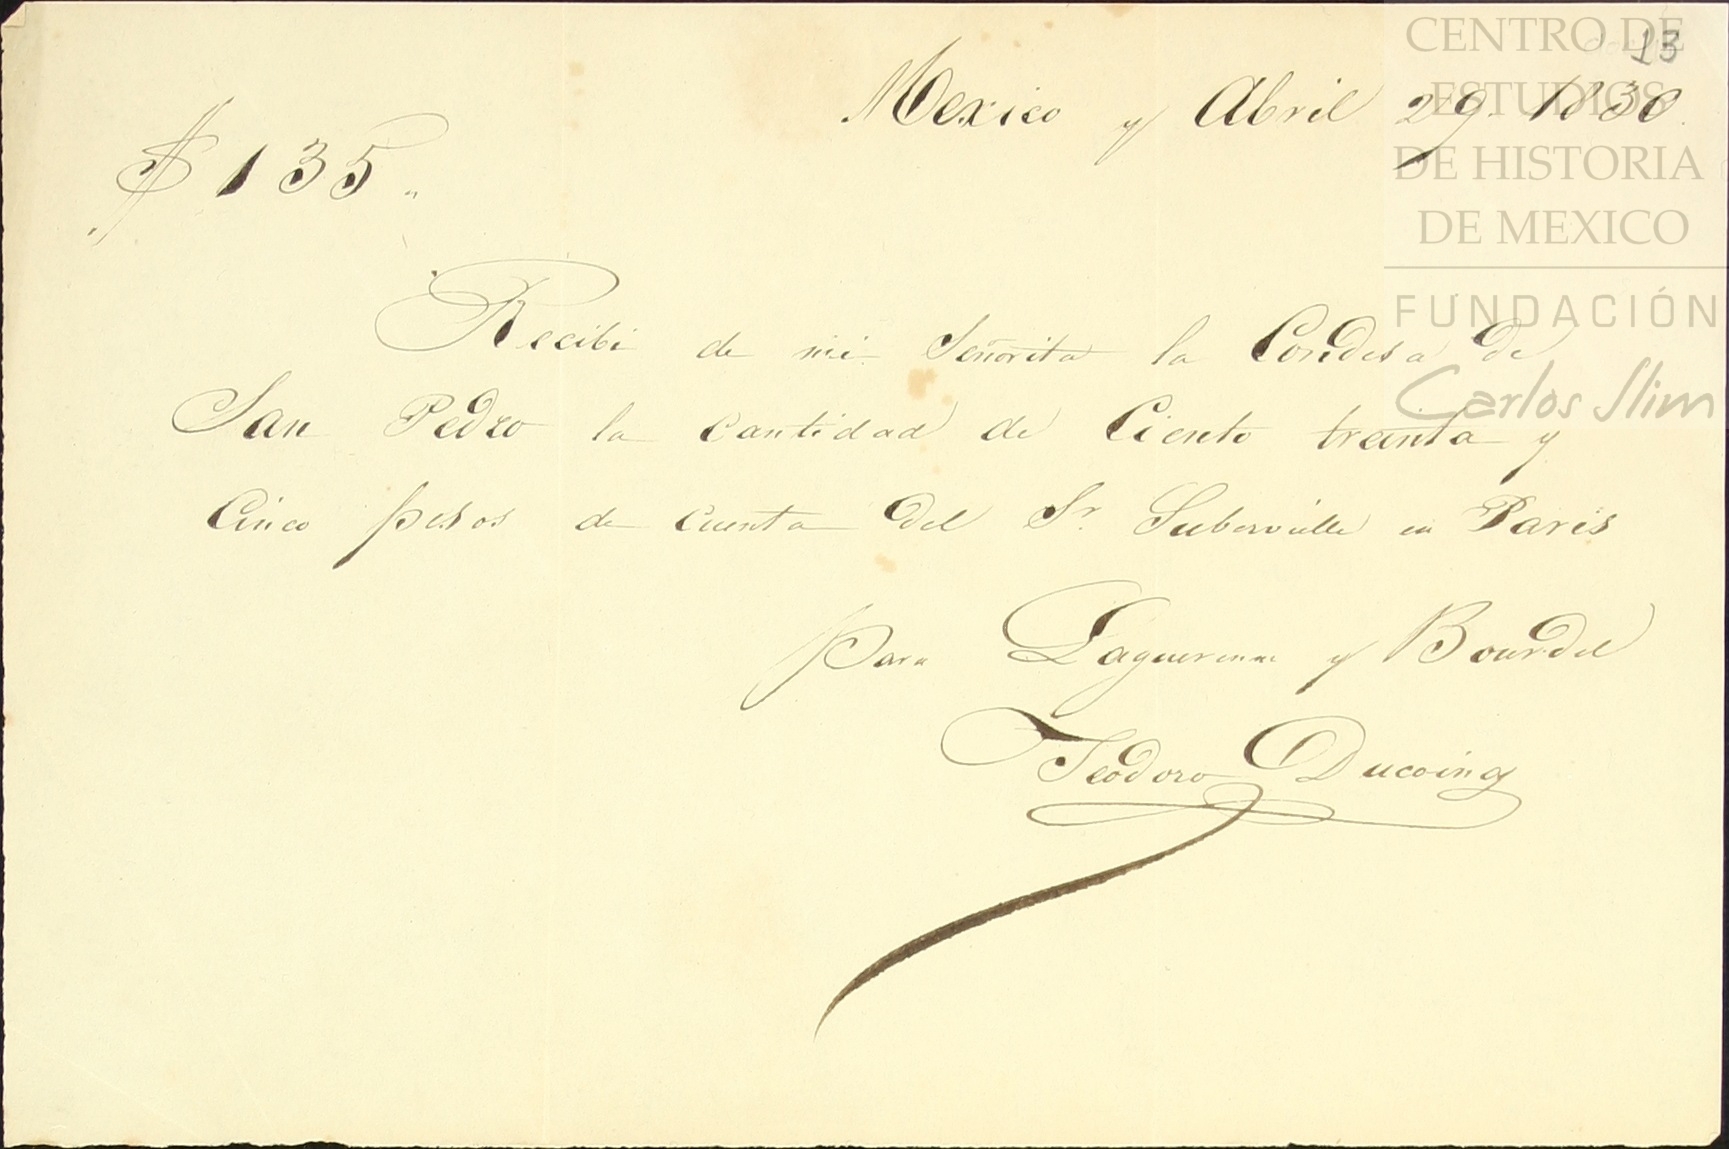 CENTRO DE
ESTUDIOS
DE HISTORIA
DE MEXICO
FUNDACIÓN
Carlos Slim
13
Mexico y Abril 29. 1830.
$ 135 "
Recibi de mi Señorita la Condesa de
San Pedro la cantidad de Ciento treinta y
Cinco pesos de cuenta del Sr. Suberville en Paris
para Laguerenne y Bourdel
Teodoro Ducoing